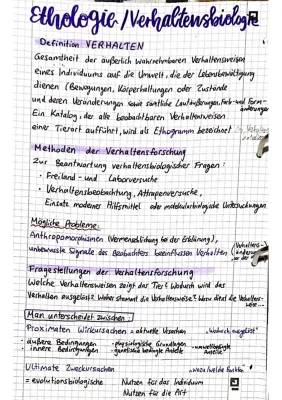 Ethologie/Verhaltensbiologie
Definition VERHALTEN
Gesamtheit der äußerlich wahrnehmbaren Verhaltensweisen
eines Individuums auf die Umwelt, die der Lebensbewältigung
dienen (Bewegungen, Körperhaltungen oder Zustände
und deren Veränderungen sowie sämtliche Lautäußerungen, Farb- und Form-
änderungen
Ein Katalog, der alle beobachtbaren Verhaltensweisen
einer Tierart aufführt, wird als Ethogramm bezeichnet
Methoden der Verhaltensforschung
Zur Beantwortung verhaltensbiologischer Fragen:
• Freiland- und Laborversuche
• Verhaltensbeobachtung, Attrapenversuche,
Einsatz moderner Hilfsmittel oder molekularbiologische Untersuchungen
Mögliche Probleme:
Anthropomorphismen (Vermenschlichung bei der Erklärung),
unbewusste Signale des Beobachters beeinflussen Verhalten
Fragestellungen der Verhaltensforschung
Welche Verhaltensweisen zeigt das Tier? Wodurch wird das
Verhalten ausgelöst? Woher stammt die Verhaltensweise? Wozu dient die Verhaltens-
weise
Man unterscheidet zwischen:
Proximaten Wirkursachen = aktuelle Ursachen "Wodurch ausgelöst"
- äußere Bedingungen - physiologische Grundlagen - umweltbedingte
- innere Bedingungen - genetische bedingte Anteile Anteile
Ultimate Zweckursachen
= evolutionsbiologische Nutzen für das Individuum
Nutzen für die Art